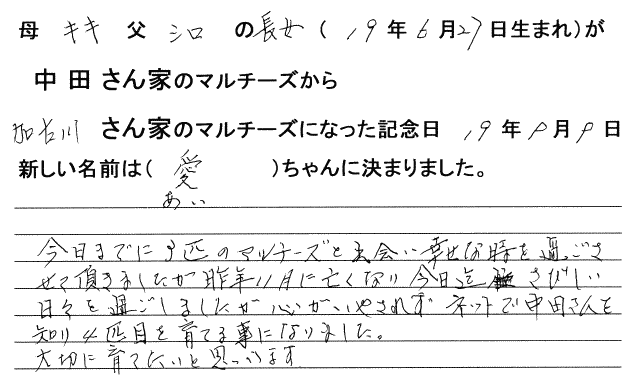 母 キキ 父 シロ の長女( 19年6月27日生まれ)が
中田さん家のマルチーズから
加古川 さん家のマルチーズになった記念日 19年9月9日
新しい名前は( 愛 )ちゃんに決まりました。
あい
今日までに3匹のマルチーズと出会い幸せな時を過ごさ
せて頂きましたが昨年11月に亡くなり今日迄 さびしい
日々を過ごしましたが心がいやされずネットで中田さんを
知り4匹目を育てる事になりました。
大切に育てたいと思っています